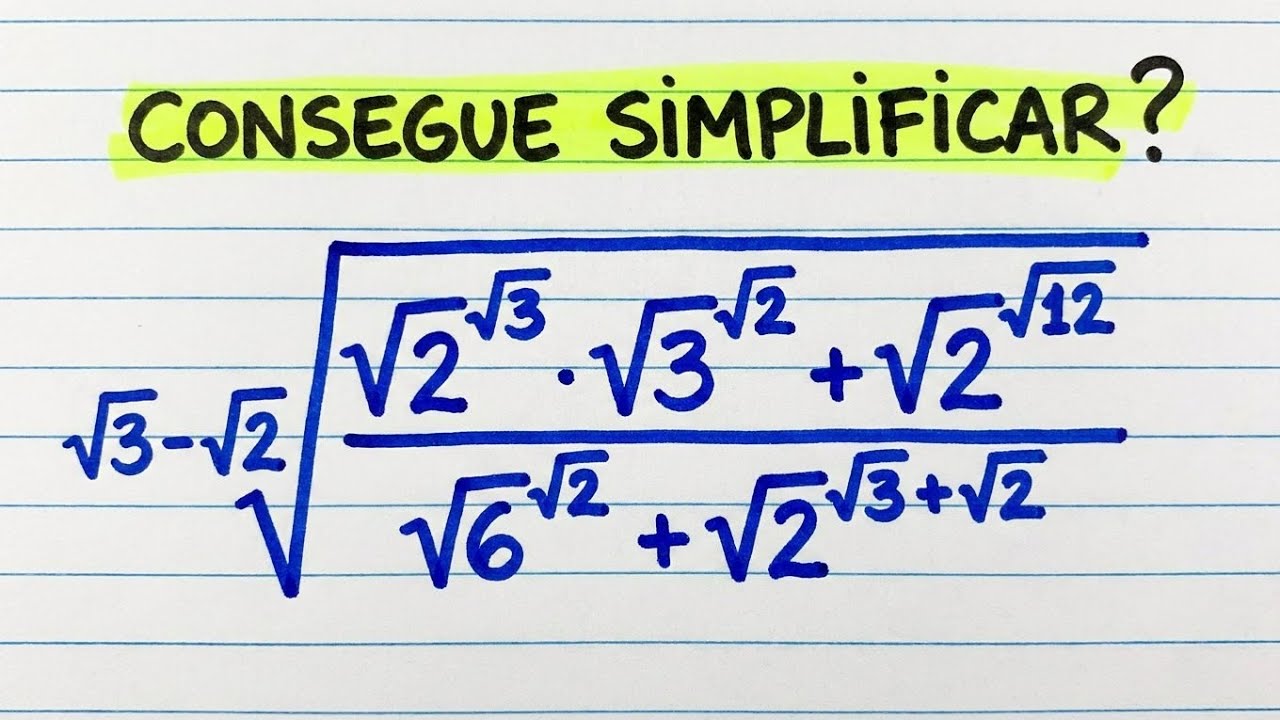 CONSEGUE SiMPLiFiCAR?
√3-√2 √
√2^√3 · √3^√2 + √2^√12
√6^√2 + √2^√3+√2